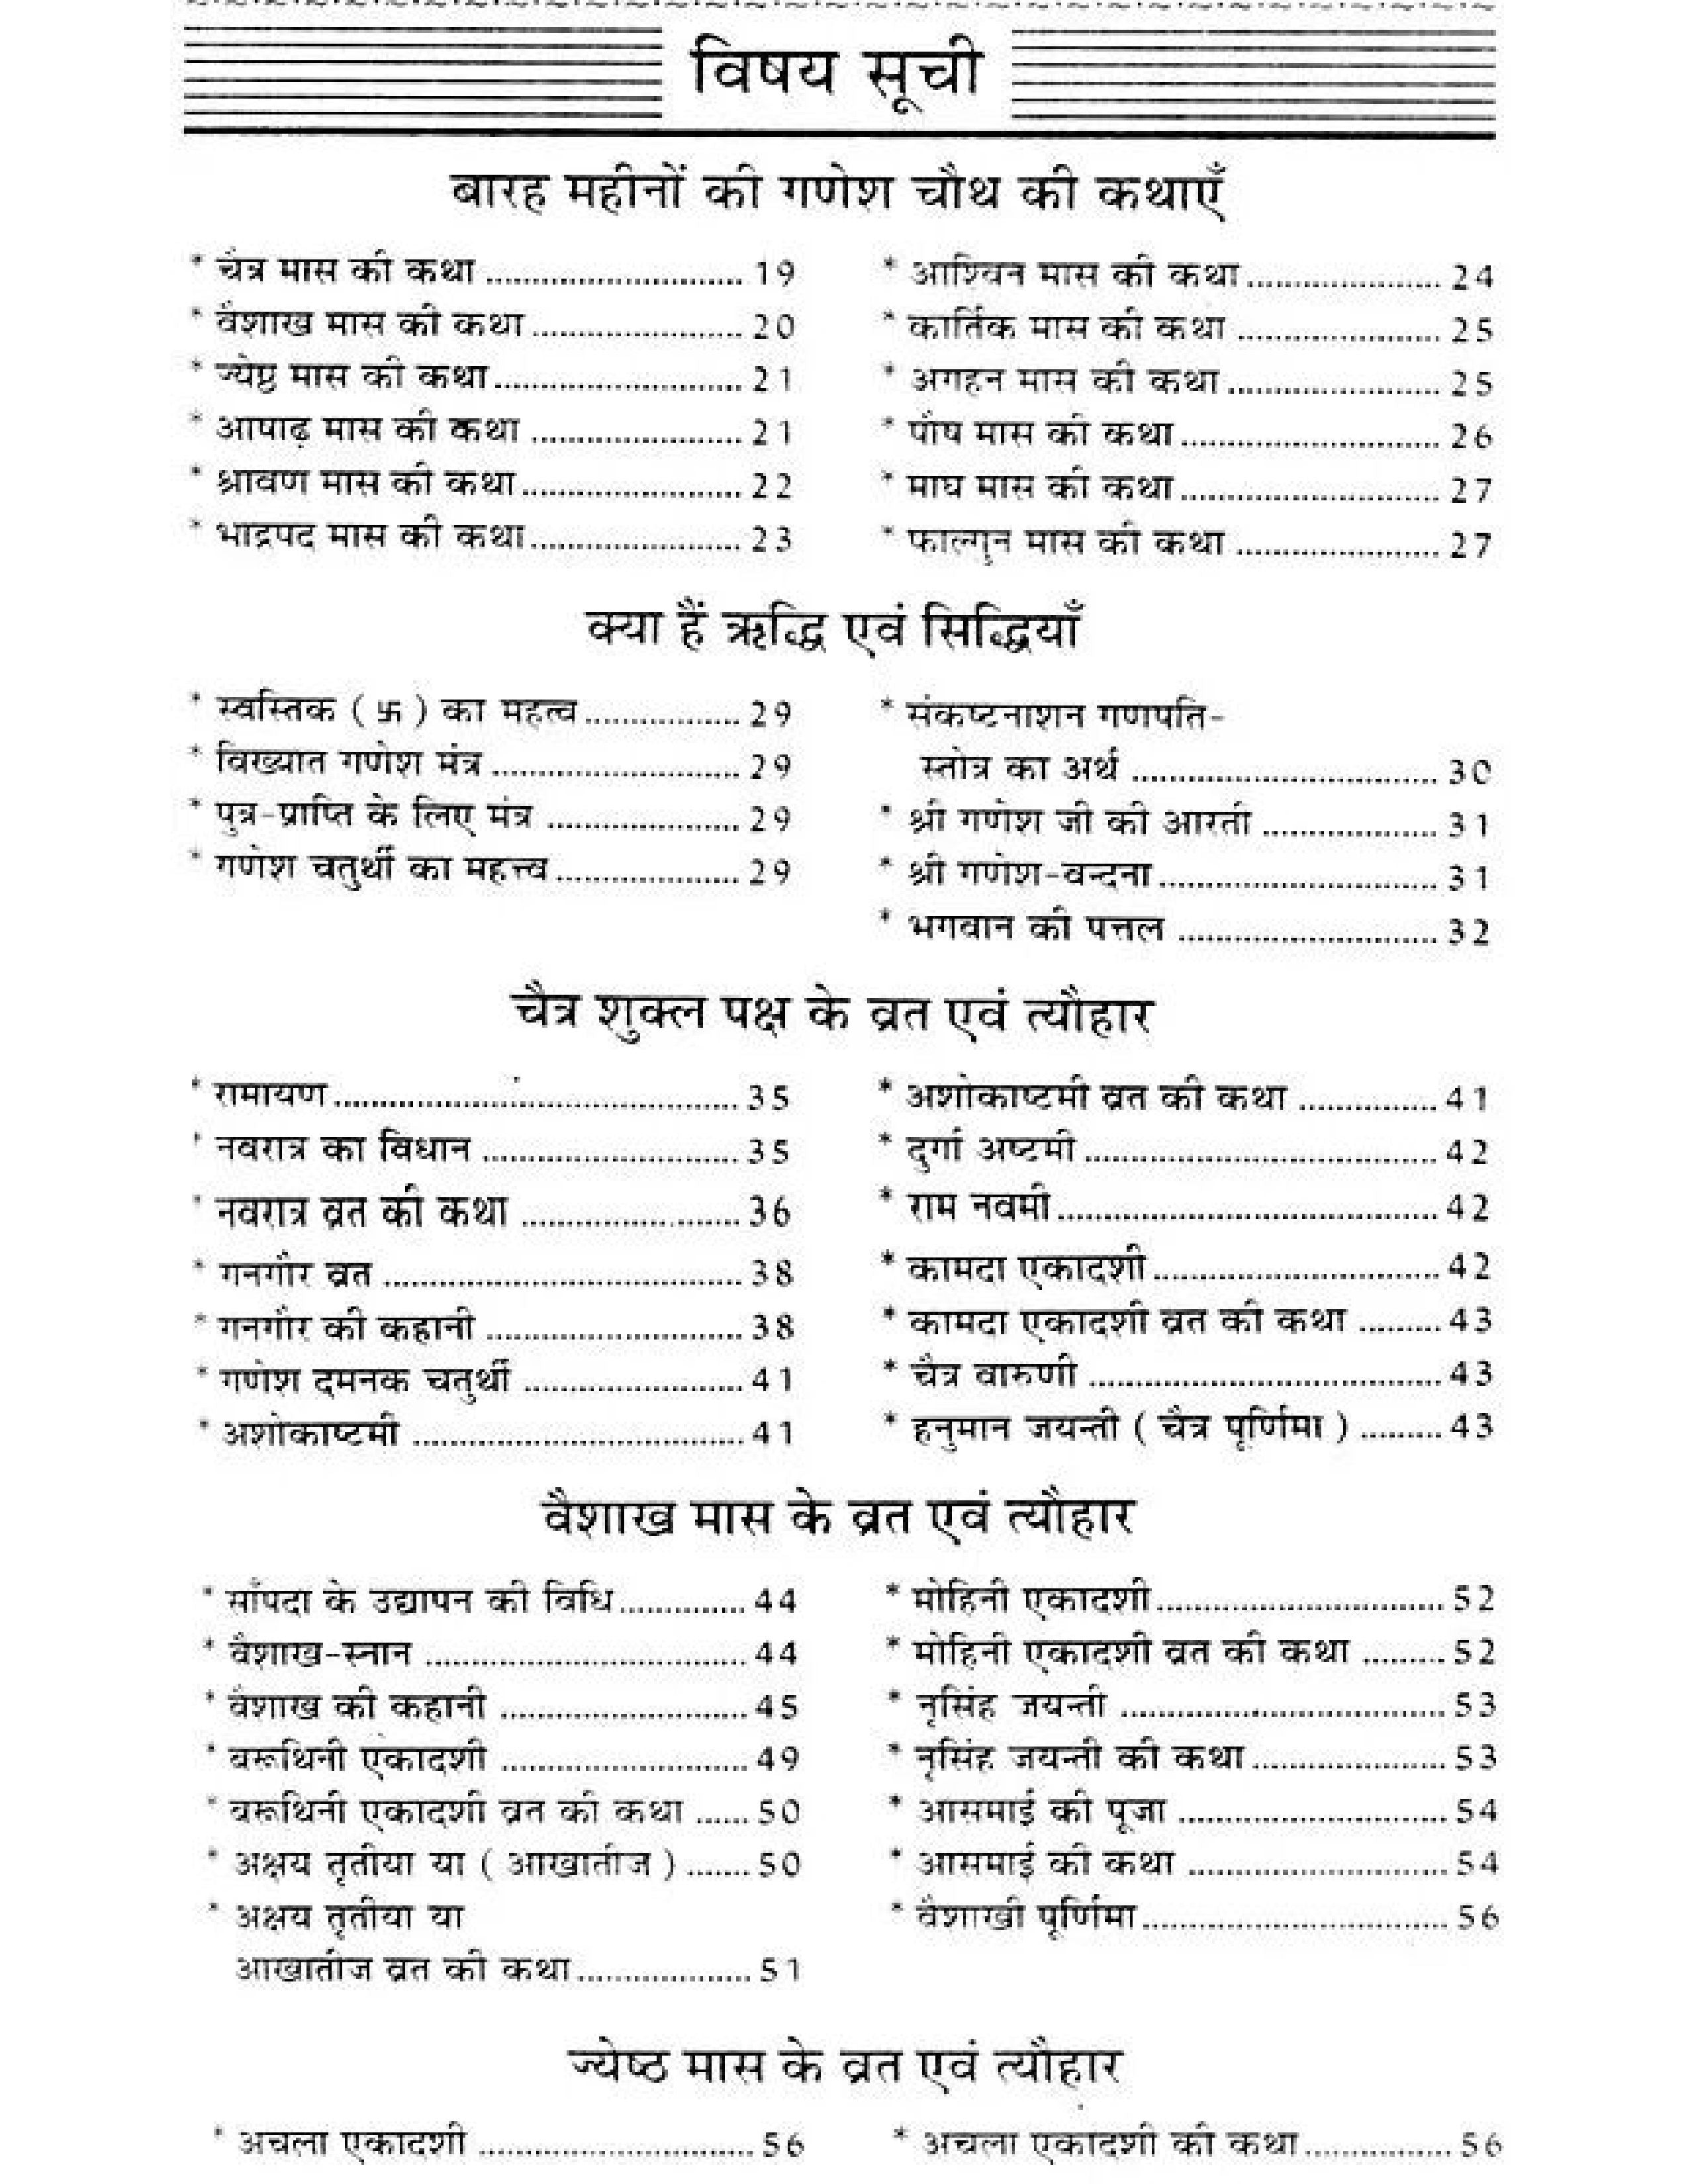 विषय सूची
बारह महीनों की गणेश चौथ की कथाएँ
* चैत्र मास की कथा ........................... 19
* वैशाख मास की कथा ...................... 20
* ज्येष्ठ मास की कथा .......................... 21
* आषाढ़ मास की कथा ...................... 21
* श्रावण मास की कथा ....................... 22
* भाद्रपद मास की कथा ...................... 23
* आश्विन मास की कथा ..................... 24
* कार्तिक मास की कथा ..................... 25
* अगहन मास की कथा ...................... 25
* पौष मास की कथा ........................... 26
* माघ मास की कथा ........................... 27
* फाल्गुन मास की कथा ..................... 27
क्या हैं ऋद्धि एवं सिद्धियाँ
* स्वस्तिक ( 卐 ) का महत्व ................ 29
* विख्यात गणेश मंत्र .......................... 29
* पुत्र-प्राप्ति के लिए मंत्र .................... 29
* गणेश चतुर्थी का महत्त्व ................... 29
* संकष्टनाशन गणपति-
स्तोत्र का अर्थ ................................ 30
* श्री गणेश जी की आरती .................. 31
* श्री गणेश-वन्दना ............................. 31
* भगवान की पत्तल ........................... 32
चैत्र शुक्ल पक्ष के व्रत एवं त्यौहार
* रामायण ........................................... 35
* नवरात्र का विधान ........................... 35
* नवरात्र व्रत की कथा ....................... 36
* गनगौर व्रत ...................................... 38
* गनगौर की कहानी ........................... 38
* गणेश दमनक चतुर्थी ....................... 41
* अशोकाष्टमी ................................... 41
* अशोकाष्टमी व्रत की कथा ............... 41
* दुर्गा अष्टमी ..................................... 42
* राम नवमी ........................................ 42
* कामदा एकादशी .............................. 42
* कामदा एकादशी व्रत की कथा ......... 43
* चैत्र वारुणी ..................................... 43
* हनुमान जयन्ती ( चैत्र पूर्णिमा ) ......... 43
वैशाख मास के व्रत एवं त्यौहार
* साँपदा के उद्यापन की विधि .............. 44
* वैशाख-स्नान .................................. 44
* वैशाख की कहानी .......................... 45
* वरूथिनी एकादशी .......................... 49
* वरूथिनी एकादशी व्रत की कथा ...... 50
* अक्षय तृतीया या ( आखातीज ) ....... 50
* अक्षय तृतीया या
आखातीज व्रत की कथा ................... 51
* मोहिनी एकादशी .............................. 52
* मोहिनी एकादशी व्रत की कथा ......... 52
* नृसिंह जयन्ती .................................. 53
* नृसिंह जयन्ती की कथा ..................... 53
* आसमाई की पूजा ............................ 54
* आसमाई की कथा ........................... 54
* वैशाखी पूर्णिमा ................................ 56
ज्येष्ठ मास के व्रत एवं त्यौहार
* अचला एकादशी ............................. 56
* अचला एकादशी की कथा ............... 56